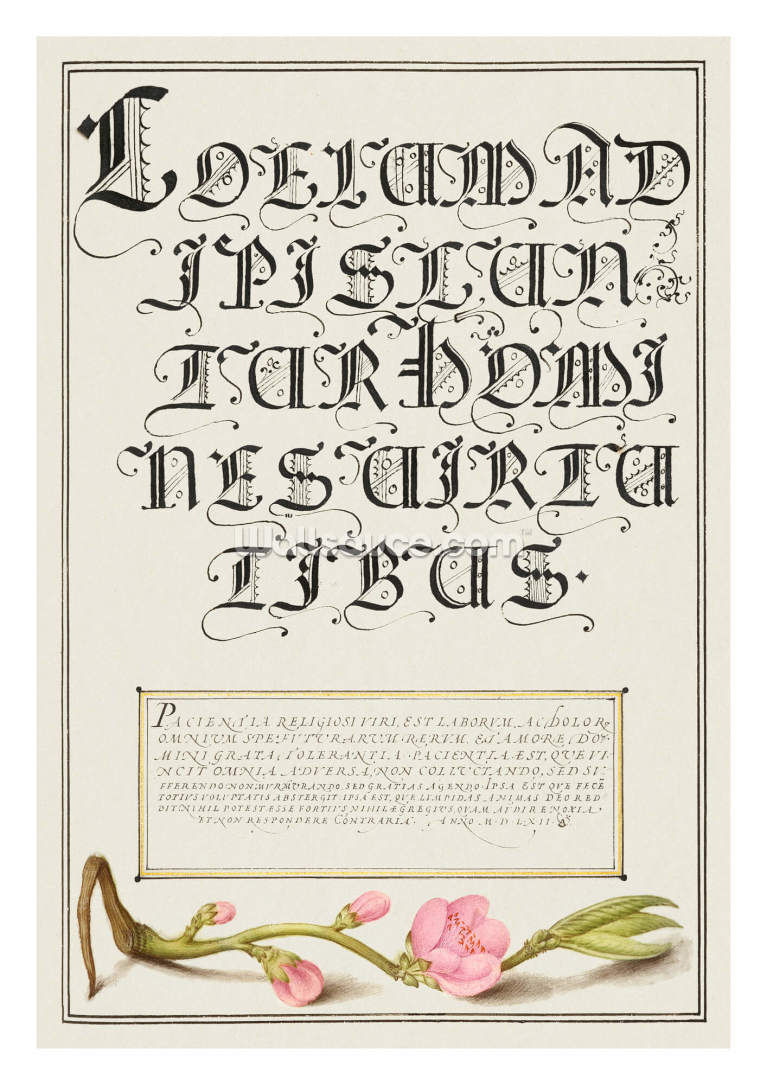 COELUM AD
IPISCUN
TUR HOMI
NES UIRTU
TIBUS.
Wallsauce.com™
PACIENTIA RELIGIOSI VIRI, EST LABORVM, AC DOLOR=
OMNIVM SPE FVTVRARVM RERVM, ET AMORE DO=
MINI GRATA TOLERANTIA. PACIENTIA EST, QVE VI=
NCIT OMNIA ADVERSA, NON COLLVCTANDO, SED SV=
FFERENDO NON MVRMVRANDO, SED GRATIAS AGENDO. IPSA EST QVE FECĒ
TOTIVS VOLVPTATIS ABSTERGIT IPSA EST, QVE LIMPIDAS ANIMAS DEO RED
DIT NIHIL POTEST ESSE FORTIVS NIHIL ÆGREGIVS, QVAM AVDIRE NOXIA
ET NON RESPONDERE CONTRARIA. ANNO M.D.LXII.